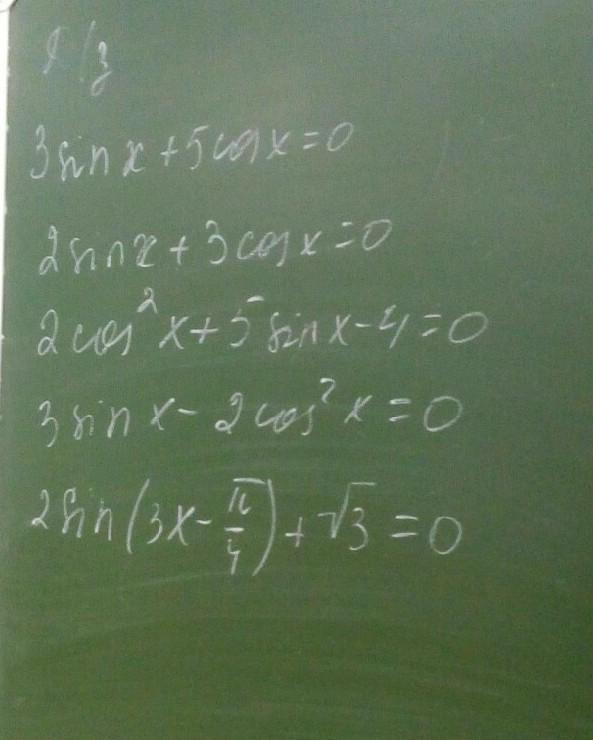 Д/з
3 sin x + 5 cos x = 0
2 sin x + 3 cos x = 0
2 cos² x + 5 sin x - 4 = 0
3 sin x - 2 cos² x = 0
2 sin (3x - π/4) + √3 = 0